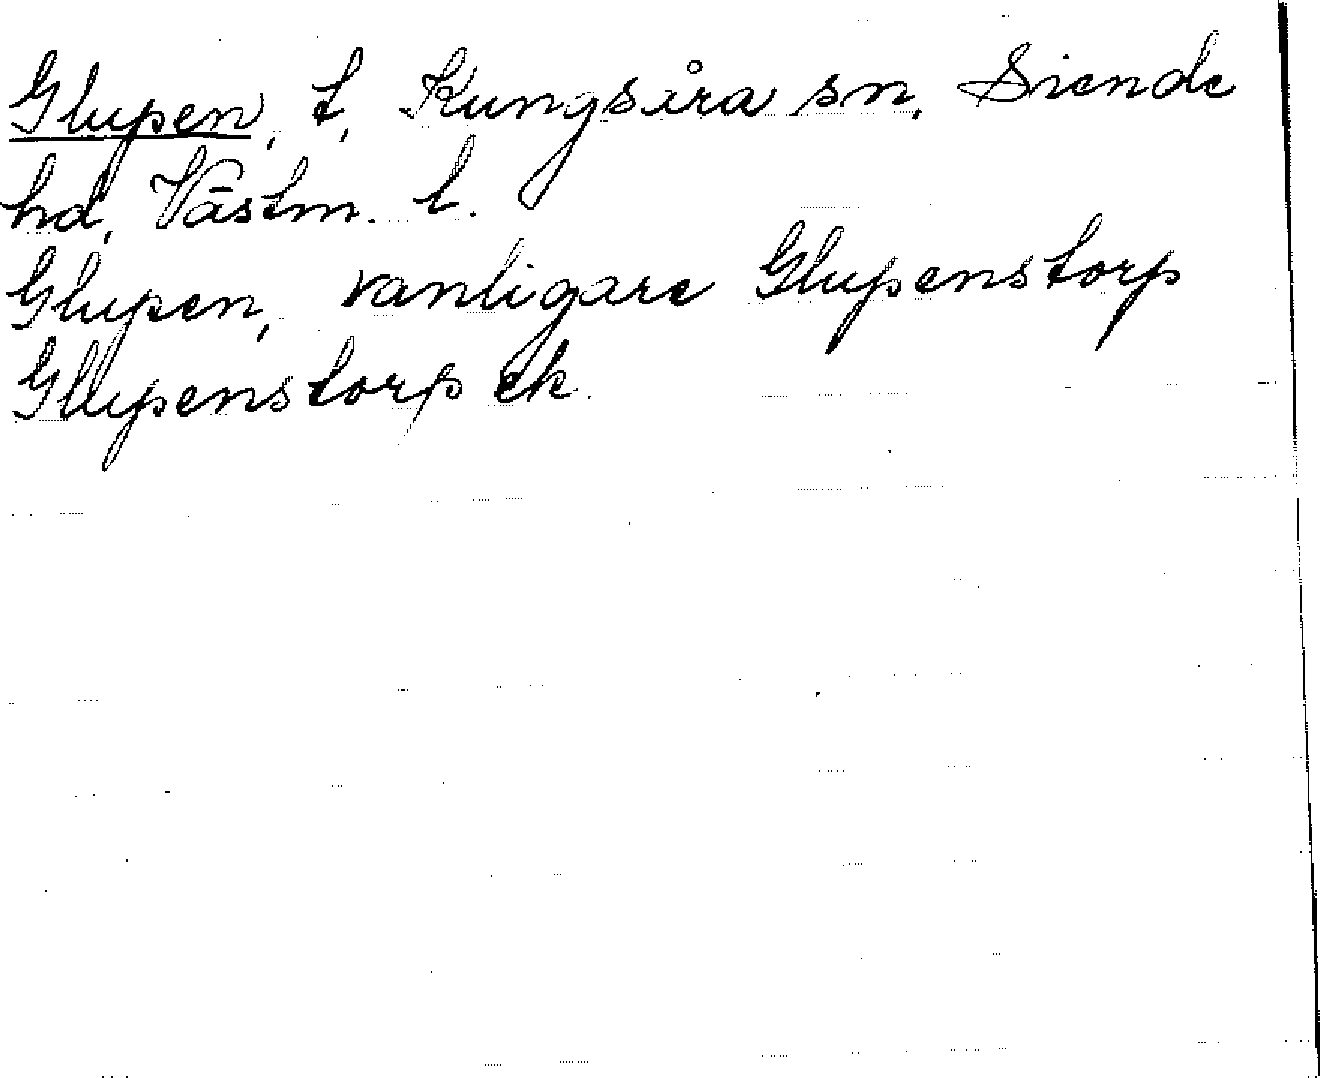 Glupen, t, Kungsåra sn, Siende
hd, Västm. l.
Glupen, vanligare Glupenstorp
Glupenstorp ek.